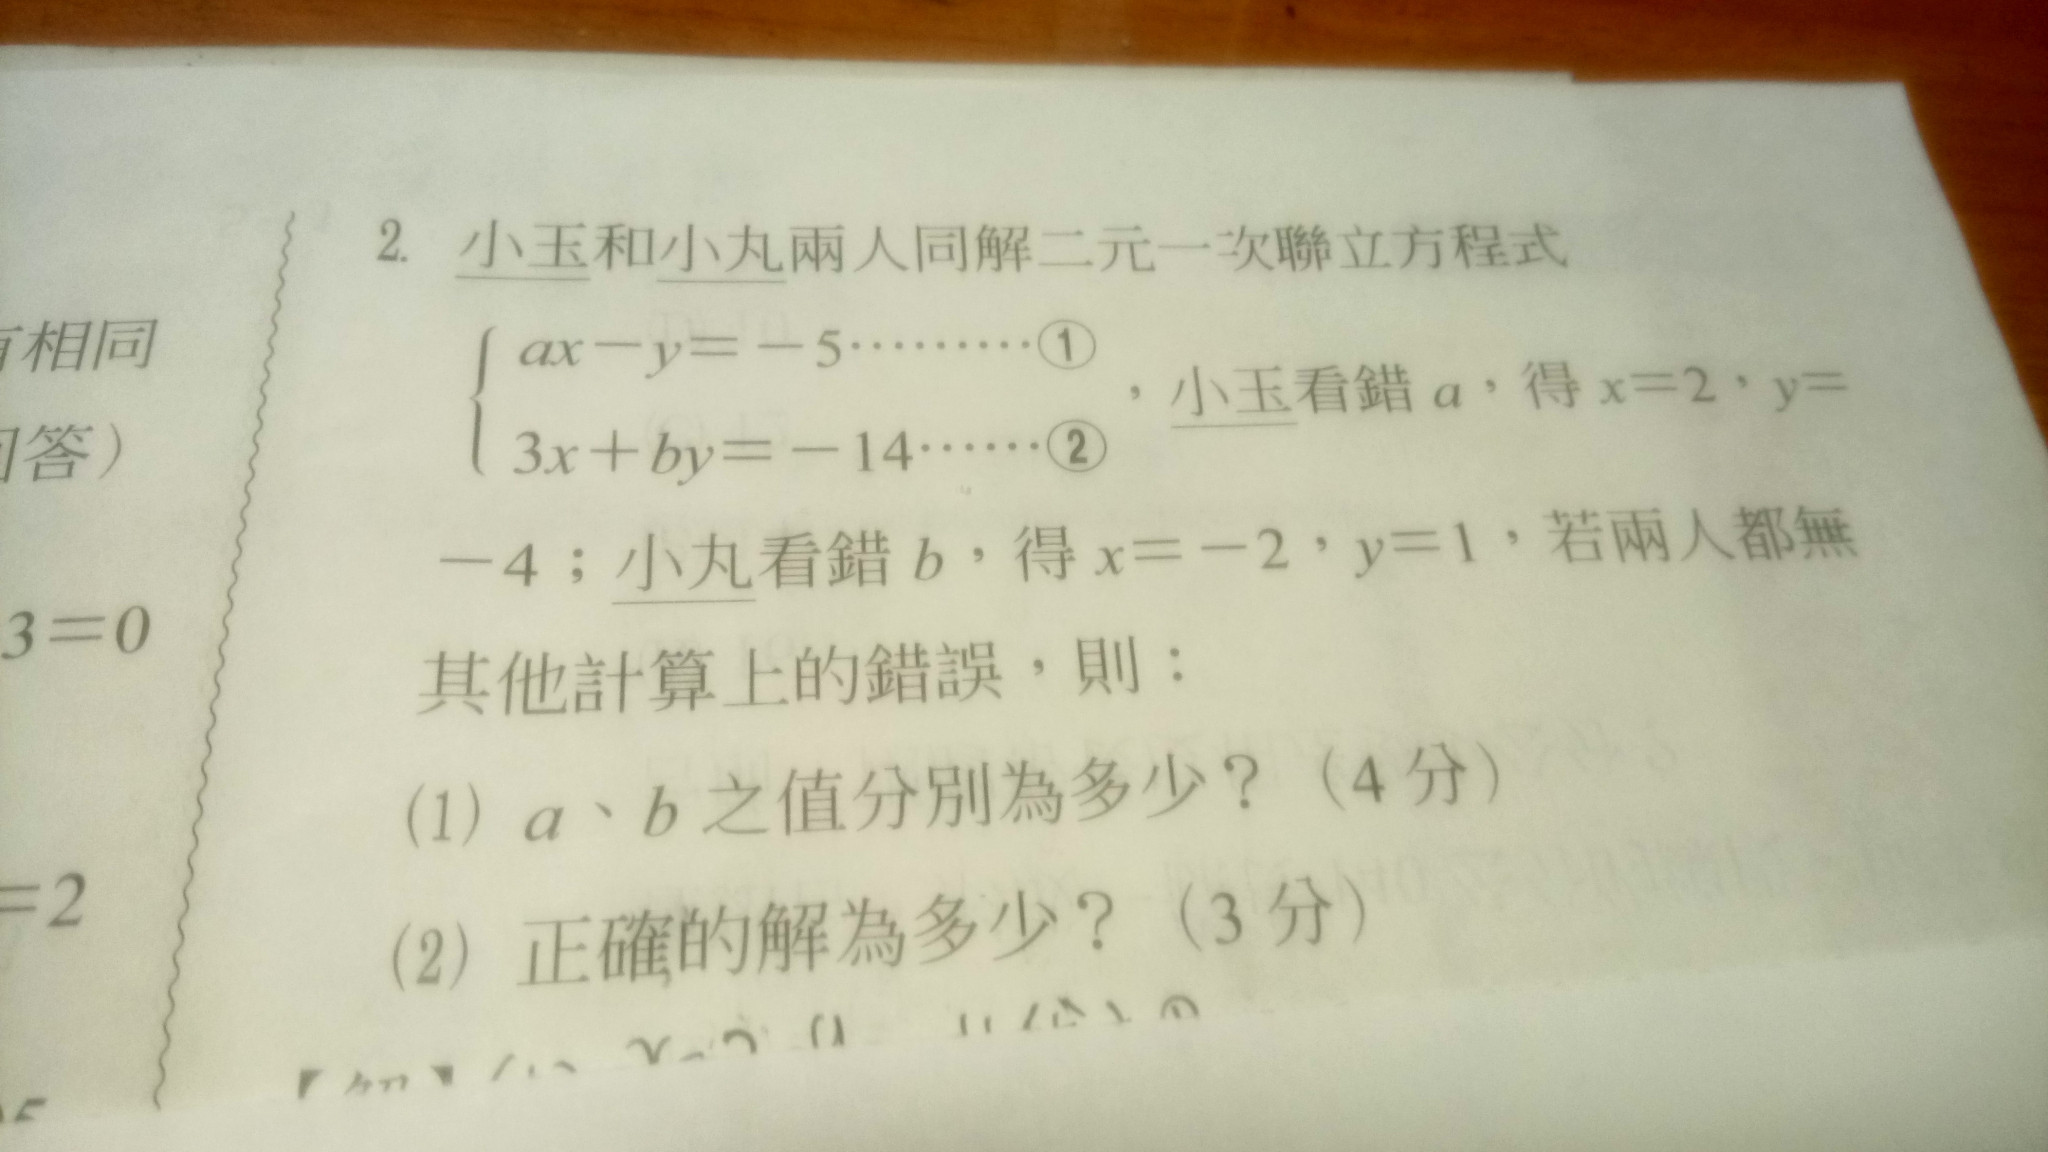 相同
答）
3＝0
＝2
2. 小玉和小丸兩人同解二元一次聯立方程式
ax－y＝－5………①
，小玉看錯 a，得 x＝2，y＝
3x＋by＝－14……②
－4；小丸看錯 b，得 x＝－2，y＝1，若兩人都無
其他計算上的錯誤，則：
(1) a、b 之值分別為多少？（4 分）
(2) 正確的解為多少？（3 分）